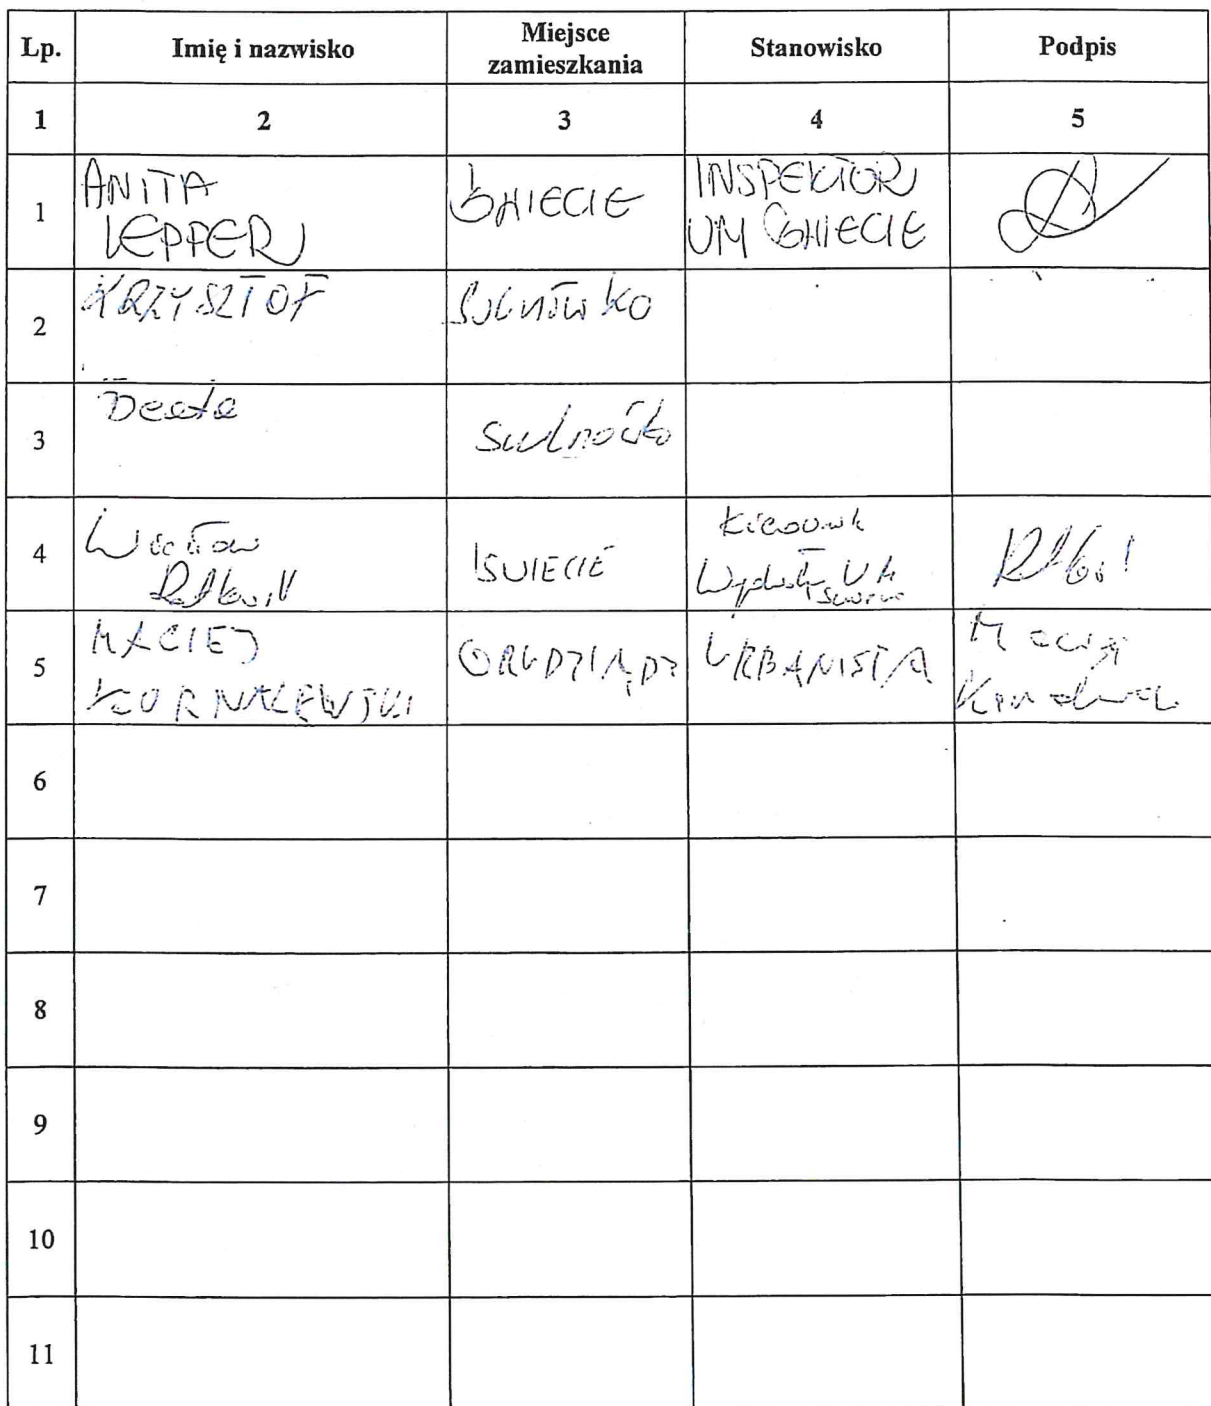 Lp. Imię i nazwisko Miejsce zamieszkania Stanowisko Podpis
1 2 3 4 5
1 ANITA LEPPER ŚWIECIE INSPEKTOR UM ŚWIECIE
2 KRZYSZTOF SULNÓWKO
3 Beata Sulnówko
4 Wiesław ŚWIECIE Kierownik Wydziału UM
5 MACIEJ GRUDZIĄDZ URBANISTA Maciej
6
7
8
9
10
11